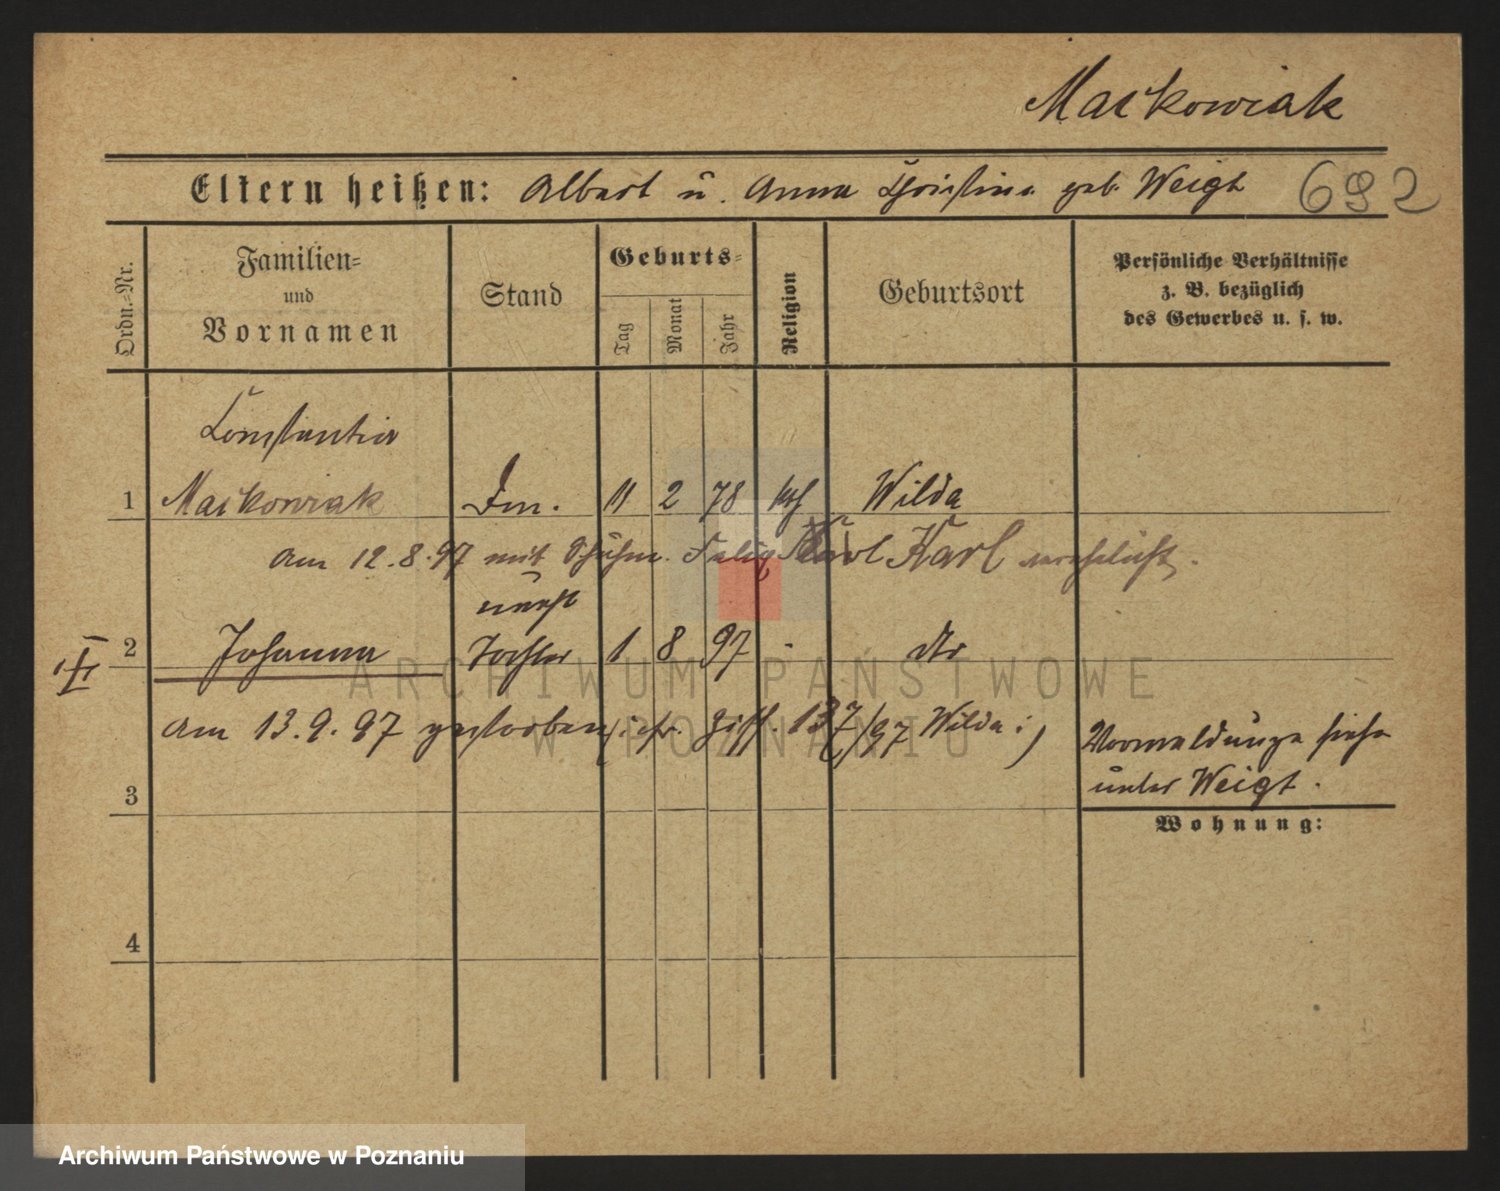 Maćkowiak
Eltern heißen: Albert u. Anna Christina geb. Weigt 692
Ordn.-Nr.
Familien-
und
Vornamen
Stand
Geburts-
Tag
Monat
Jahr
Religion
Geburtsort
Persönliche Verhältnisse
z. B. bezüglich
des Gewerbes u. s. w.
Constantia
1 Maćkowiak 11 2 78 kth Wilda
am 12.8.97 mit Schuhm. Karl verehelicht.
unehl
2 Johanna Tochter 1 8 97 - dto
am 13.9.97 gestorben Wilda :)
Vormeldunge siehe
unter Weigt.
3
Wohnung:
4
ARCHIWUM PAŃSTWOWE
W POZNANIU
Archiwum Państwowe w Poznaniu